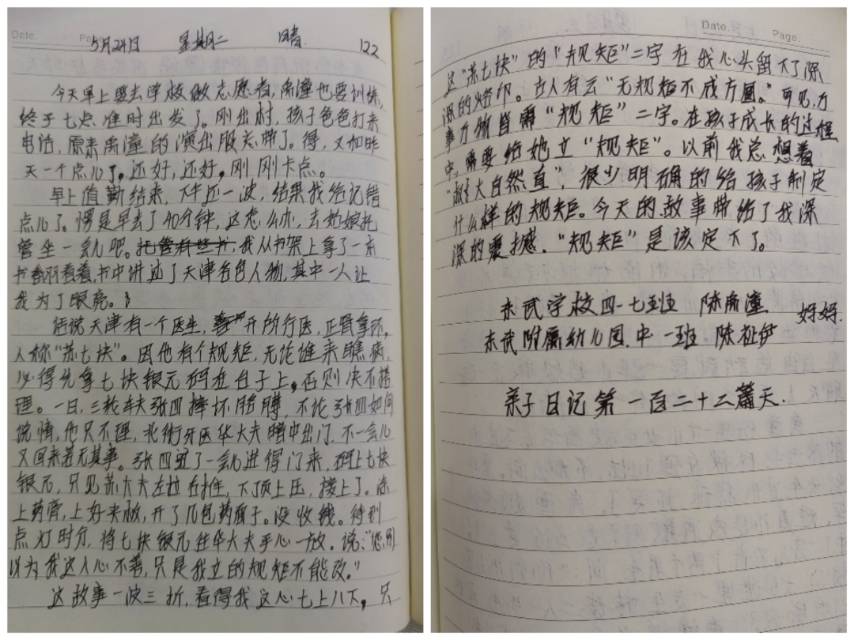 Date.
5月24日 星期二 晴. 122
今天早上要去学校做志愿者,雨潼也要训练,
终于七点准时出发了。刚出村,孩子爸爸打来
电话,原来雨潼的演出服未带了。得,又和昨
天一个点儿了。还好,还好,刚刚卡点。
早上值勤结束,下午还一波,结果我给记错
点儿了。愣是早去了40分钟,这怎么办,去她嫂托
管坐一会儿吧。我从书架上拿了一本
书翻看着,书中讲述了天津各色人物,其中一人让
我为了眼亮。
话说天津有一个医生,开所行医,正骨拿环,
人称“苏七块”。因他有个规矩,无论谁来瞧病,
必得先拿七块银元码在台子上,否则决不搭
理。一日,三轮车夫张四摔坏胳膊,不论张四如何
说情,他只不理,北街牙医华大夫暗中出门,不一会儿
又回来若无其事。张四过了一会儿进得门来,码上七块
银元,只见苏大夫左拉右拄,下顶上压,接上了。涂
上药膏,上好夹板,开了几包药面子。没收钱。待到
点灯时分,将七块银元往华大夫手心一放。说:“您别
以为我这人心不善,只是我立的规矩不能改。”
这故事一波三折,看得我这心七上八下,只
Date. Page.
这“苏七块”的“规矩”二字在我心头留下了深
深的烙印。古人有云“无规矩不成方圆。”可见,万
事万物皆需“规矩”二字。在孩子成长的过程
中,需要给她立“规矩”。以前我总想着
“大自然直”,很少明确的给孩子制定
什么样的规矩。今天的故事带给了我深
深的震撼.“规矩”是该定下了。
东武学校四·七班 陈雨潼 妈妈.
东武附属幼儿园.中一班 陈祉伊
亲子日记第一百二十二篇天.